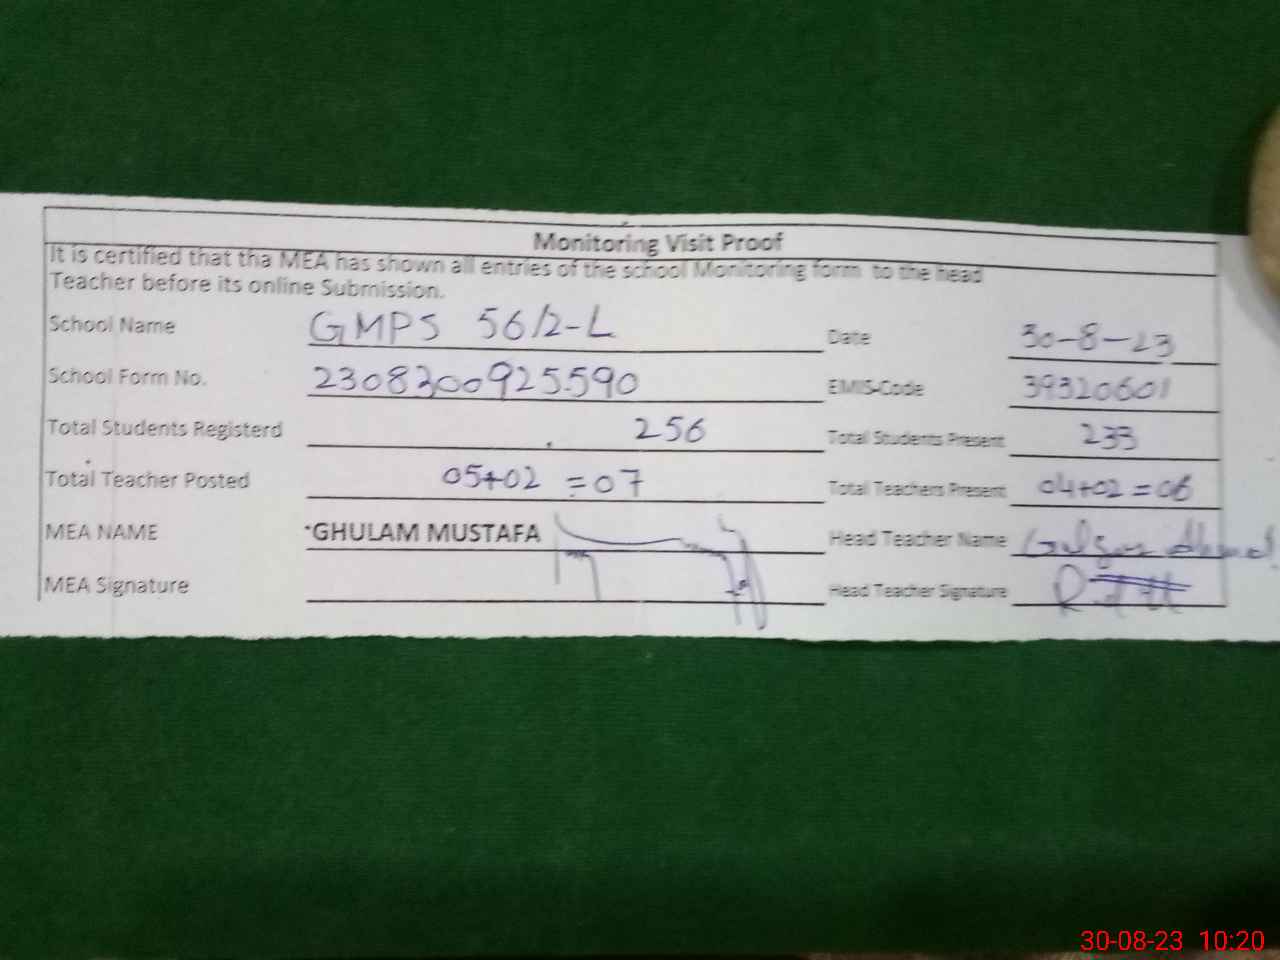 Monitoring Visit Proof
It is certified that tha MEA has shown all entries of the school Monitoring form to the head
Teacher before its online Submission.
School Name GMPS 56/2-L Date 30-8-23
School Form No. 2308300925590 EMIS-Code 39320601
Total Students Registerd 256 Total Students Present 233
Total Teacher Posted 05+02 = 07 Total Teachers Present 04+02 = 06
MEA NAME GHULAM MUSTAFA Head Teacher Name
MEA Signature Head Teacher Signature
30-08-23 10:20